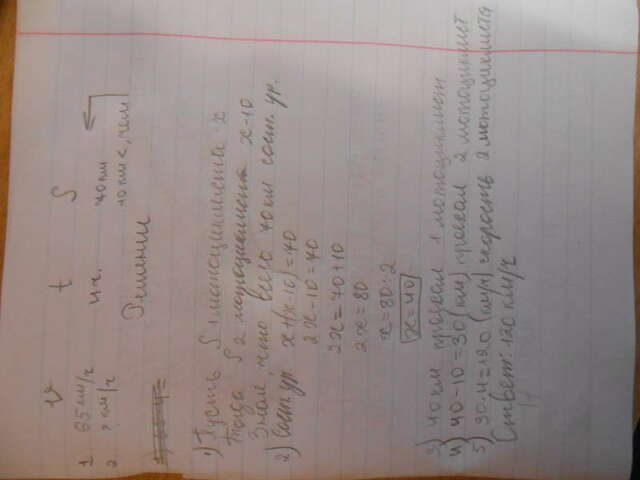 v t S
1. 65 км/ч 4 ч. 70 км
2. ? км/ч 10 км <, чем
Решение
1) Пусть S 1 мотоциклиста x
Тогда S 2 мотоциклиста x-10
Зная, что всего 70 км сост. ур.
2) Сост. ур. x+(x-10)=70
2x-10=70
2x=70+10
2x=80
x=80:2
x=40
3) 40 км проехал 1 мотоциклист
4) 40-10=30(км) проехал 2 мотоциклист
5) 30·4=120 (км/ч) скорость 2 мотоциклиста
Ответ: 120 км/ч